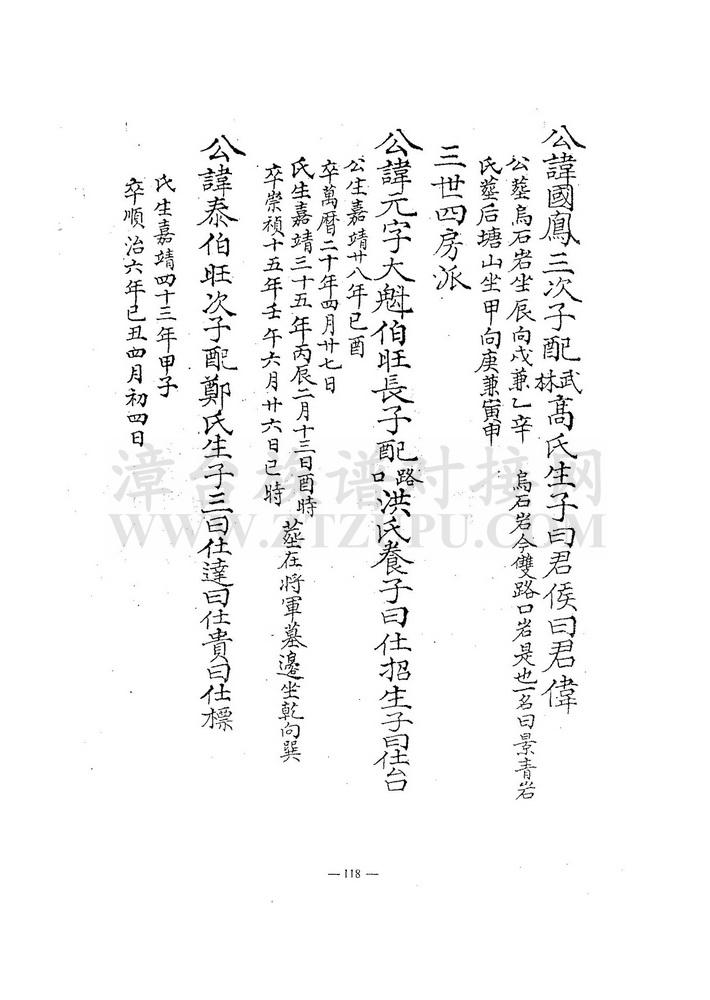 公諱國鳳三次子配武林高氏生子曰君侯曰君偉
公塟烏石岩坐辰向戍兼乙辛 烏石岩今雙路口岩是也一名曰景青岩
氏塟后塘山坐甲向庚兼寅申
三世四房派
公諱元字大魁伯旺長子配路口洪氏養子曰仕招生子曰仕台
公生嘉靖廿八年已酉
卒萬曆二十年四月廿七日
氏生嘉靖三十五年丙辰二月十三日酉時
卒崇禎十五年壬午六月廿六日已時
塟在將軍墓邊坐乾向巽
公諱泰伯旺次子配鄭氏生子三曰仕達曰仕貴曰仕標
氏生嘉靖四十三年甲子
卒順治六年已丑四月初四日
漳台族谱对接网
WWW.ZTZUPU.COM
— 118 —